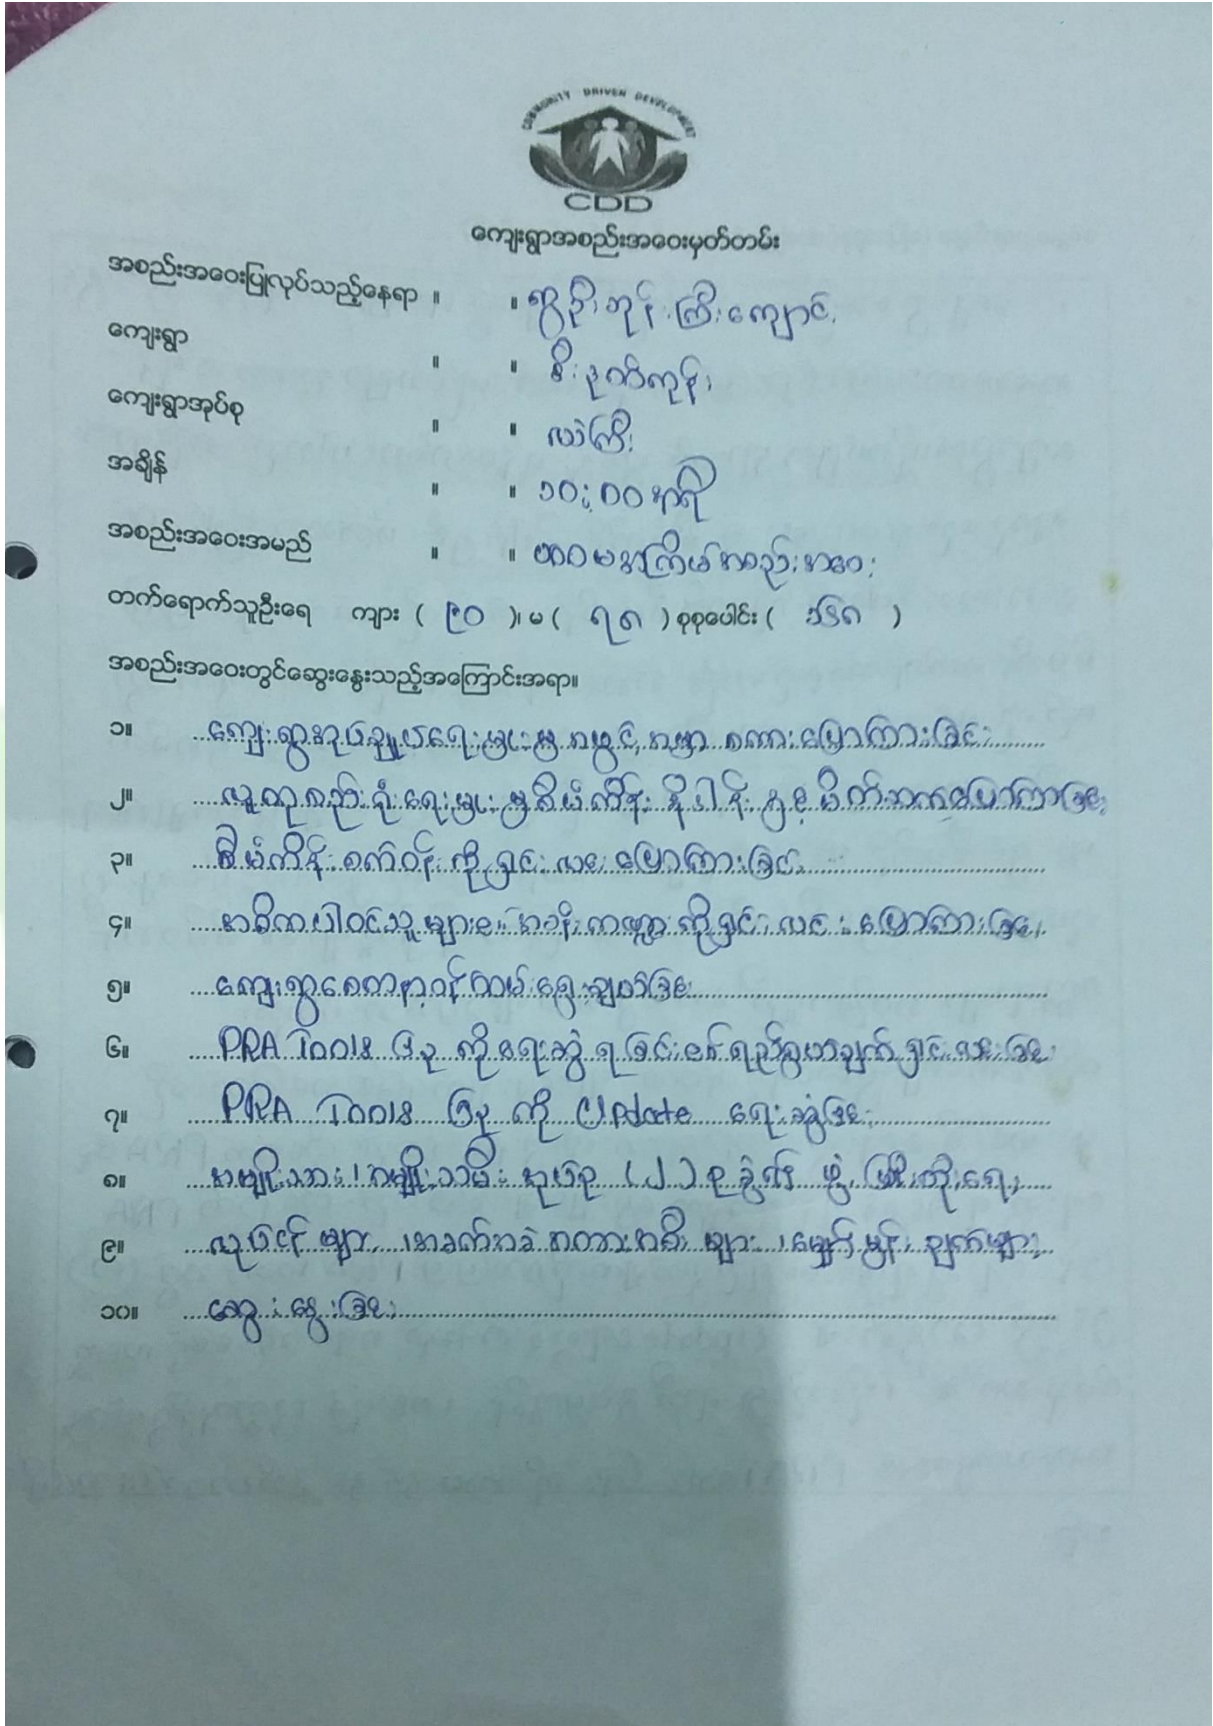 COMMUNITY DRIVEN DEVELOPMENT
CDD
ကျေးရွာအစည်းအဝေးမှတ်တမ်း
အစည်းအဝေးပြုလုပ်သည့်နေရာ ။ ။ ရွာဦးဘုန်းကြီးကျောင်း
ကျေးရွာ ။ ။ စီးဒုတ်ကုန်း
ကျေးရွာအုပ်စု ။ ။ လယ်ကြီး
အချိန် ။ ။ ၁၀:၀၀ နာရီ
အစည်းအဝေးအမည် ။ ။ ပထမအကြိမ်အစည်းအဝေး
တက်ရောက်သူဦးရေ ကျား ( ၉၀ )၊ မ ( ၇၈ ) စုစုပေါင်း ( ၁၆၈ )
အစည်းအဝေးတွင်ဆွေးနွေးသည့်အကြောင်းအရာ။
၁။ ကျေးရွာအုပ်ချုပ်ရေးမှူးမှ အဖွင့်အမှာ စကားပြောကြားခြင်း
၂။ လူထုစည်းရုံးရေးမှူးမှ စီမံကိန်း နိဒါန်းနှင့် မိတ်ဆက်ပြောကြားခြင်း
၃။ စီမံကိန်းစက်ဝန်းကိုရှင်းလင်းပြောကြားခြင်း
၄။ အဓိကပါဝင်သူများ၏ အခန်းကဏ္ဍကိုရှင်းလင်းပြောကြားခြင်း
၅။ ကျေးရွာစေတနာ့ဝန်ထမ်းရွေးချယ်ခြင်း
၆။ PRA Tools ၆ခု ကိုရေးဆွဲရခြင်း၏ရည်ရွယ်ချက်ရှင်းလင်းခြင်း
၇။ PRA Tools ၆ခု ကို Update ရေးဆွဲခြင်း
၈။ အမျိုးသား၊ အမျိုးသမီး အုပ်စု (၂) စုခွဲ၍ ဖွံ့ဖြိုးတိုးရေး
၉။ လုပ်ငန်းများ၊ အခက်အခဲ အတားအဆီးများ၊ မျှော်မှန်းချက်များ
၁၀။ ဆွေးနွေးခြင်း